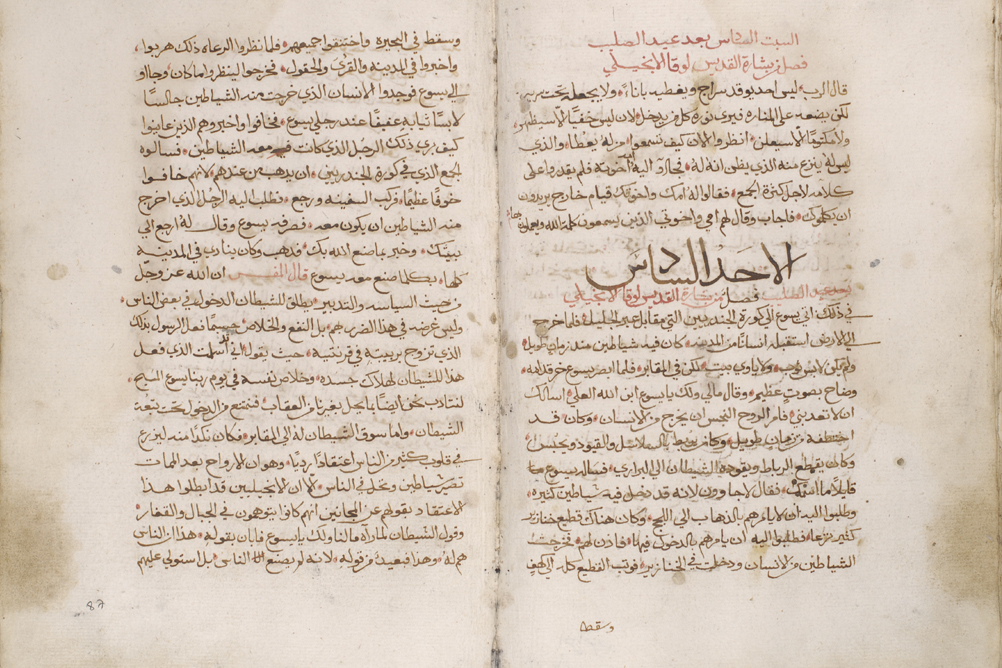 السبت السادس بعد عيد الصليب
فصل من بشارة القديس لوقا الانجيلي
قال الرب ليس احد يوقد سراج ويغطيه باناء ولا يجعله تحت سرير
لكن يضعه على المناره فيرى نوره كل من يدخل لان ليس خفيًا الا سيظهر
ولا مكتومًا الا سيعلن انظروا الان كيف تسمعوا من له يعطا والذي
ليس له ينزع منه الذي يظن انه له فجاوا اليه امه واخوته فلم يقدروا على
كلامه لاجل كثرة الجمع فقالوا له امك واخوتك قيام خارج يريدون
ان يكلموك فاجاب وقال لهم امي واخوتي الذين يسمعون كلمة الله ويعملون بها
الاحد السادس
بعد عيد الصليب فصل من بشارة القديس لوقا الانجيلي
في ذلك اتى يسوع الى كورة الجندريين التي مقابل عبر الجليل فلما خرج
الى الارض استقبله انسانًا من المدينه كان فيه شياطين منذ زمان طويل
ولم يكن لابس ثوب ولا ياوي بيت لكن في المقابر فلما ابصر يسوع خر قدامه
وصاح بصوتٍ عظيم وقال مالي ولك يا يسوع ابن الله العلي اسالك
ان لا تعذبني فامر الروح النجس ان يخرج من الانسان وكان قد
اختطفه من زمان طويل وكان يربط بالسلاسل والقيود ويحبس
وكان يقطع الرباط ويقوده الشيطان الى البراري فساله يسوع
قايلاً ما اسمك فقال لاجاوون لانه قد دخل فيه شياطين كثيره
وطلبوا اليه ان لا يامرهم بالذهاب الى اللجج وكان هناك قطيع خنازير
كثير يرعا فطلبوا اليه ان يامرهم بالدخول فيها فاذن لهم فخرجت
الشياطين من الانسان ودخلت في الخنازير فوثب القطيع كله الى كهف
وسقط
وسقط في البحيرة واختنقوا جميعهم فلما نظروا الرعاه ذلك هربوا
واخبروا في المدينه والقرى والحقول فخرجوا لينظروا ما كان وجاوا
الى يسوع فوجدوا الانسان الذي خرجت منه الشياطين جالسًا
لابسًا ثيابه عفيفًا عند رجلي يسوع فخافوا واخبروهم الذين عاينوا
كيف بري ذلك الرجل الذي كانت معه الشياطين فسالوه
الجمع الذي في كورة الجندريين ان يذهب من عندهم لانهم خافوا
خوفًا عظيمًا فركب السفينه ورجع فطلب اليه الرجل الذي اخرج
منه الشياطين ان يكون معه فصرفه يسوع وقال له ارجع الى
بيتك وخبر بما صنع الله بك فذهب وكان ينادي في المدينة
كلها بكلما صنع معه يسوع قال المفسر ان الله عز وجل
من حيث السياسه والتدبير يطلق للشيطان الدخول في بعض الناس
وليس غرضه في هذا الضرر لهم بل النفع والخلاص حسبما فعل الرسول بذلك
الذي تزوج بربيبته في قرنتية حيث يقول اني اسلمت الذي فعل
هذا للشيطان لهلاك جسده وخلاص نفسه في يوم ربنا يسوع المسيح
لنتادب نحن ايضًا بما يحل بغيرنا من العقاب فنمتنع من الدخول تحت تبعة
الشيطان واما سوق الشيطان له الى المقابر فكان نكدًا منه ليزرع
في قلوب كثير من الناس اعتقادًا رديًا وهو ان الارواح بعد الممات
تصير شياطين وتدخل في الناس الا ان الانجيليين قد ابطلوا هذا
الاعتقاد بقولهم عن المجانين انهم كانوا يتوهون في الجبال والقفار
وقول الشيطان مالنا ولك يا يسوع فابان بقوله هذا ان الناس
هم له وهذا فبعيد من قوله لانه لم يصنع الناس بل ستولي عليهم
87